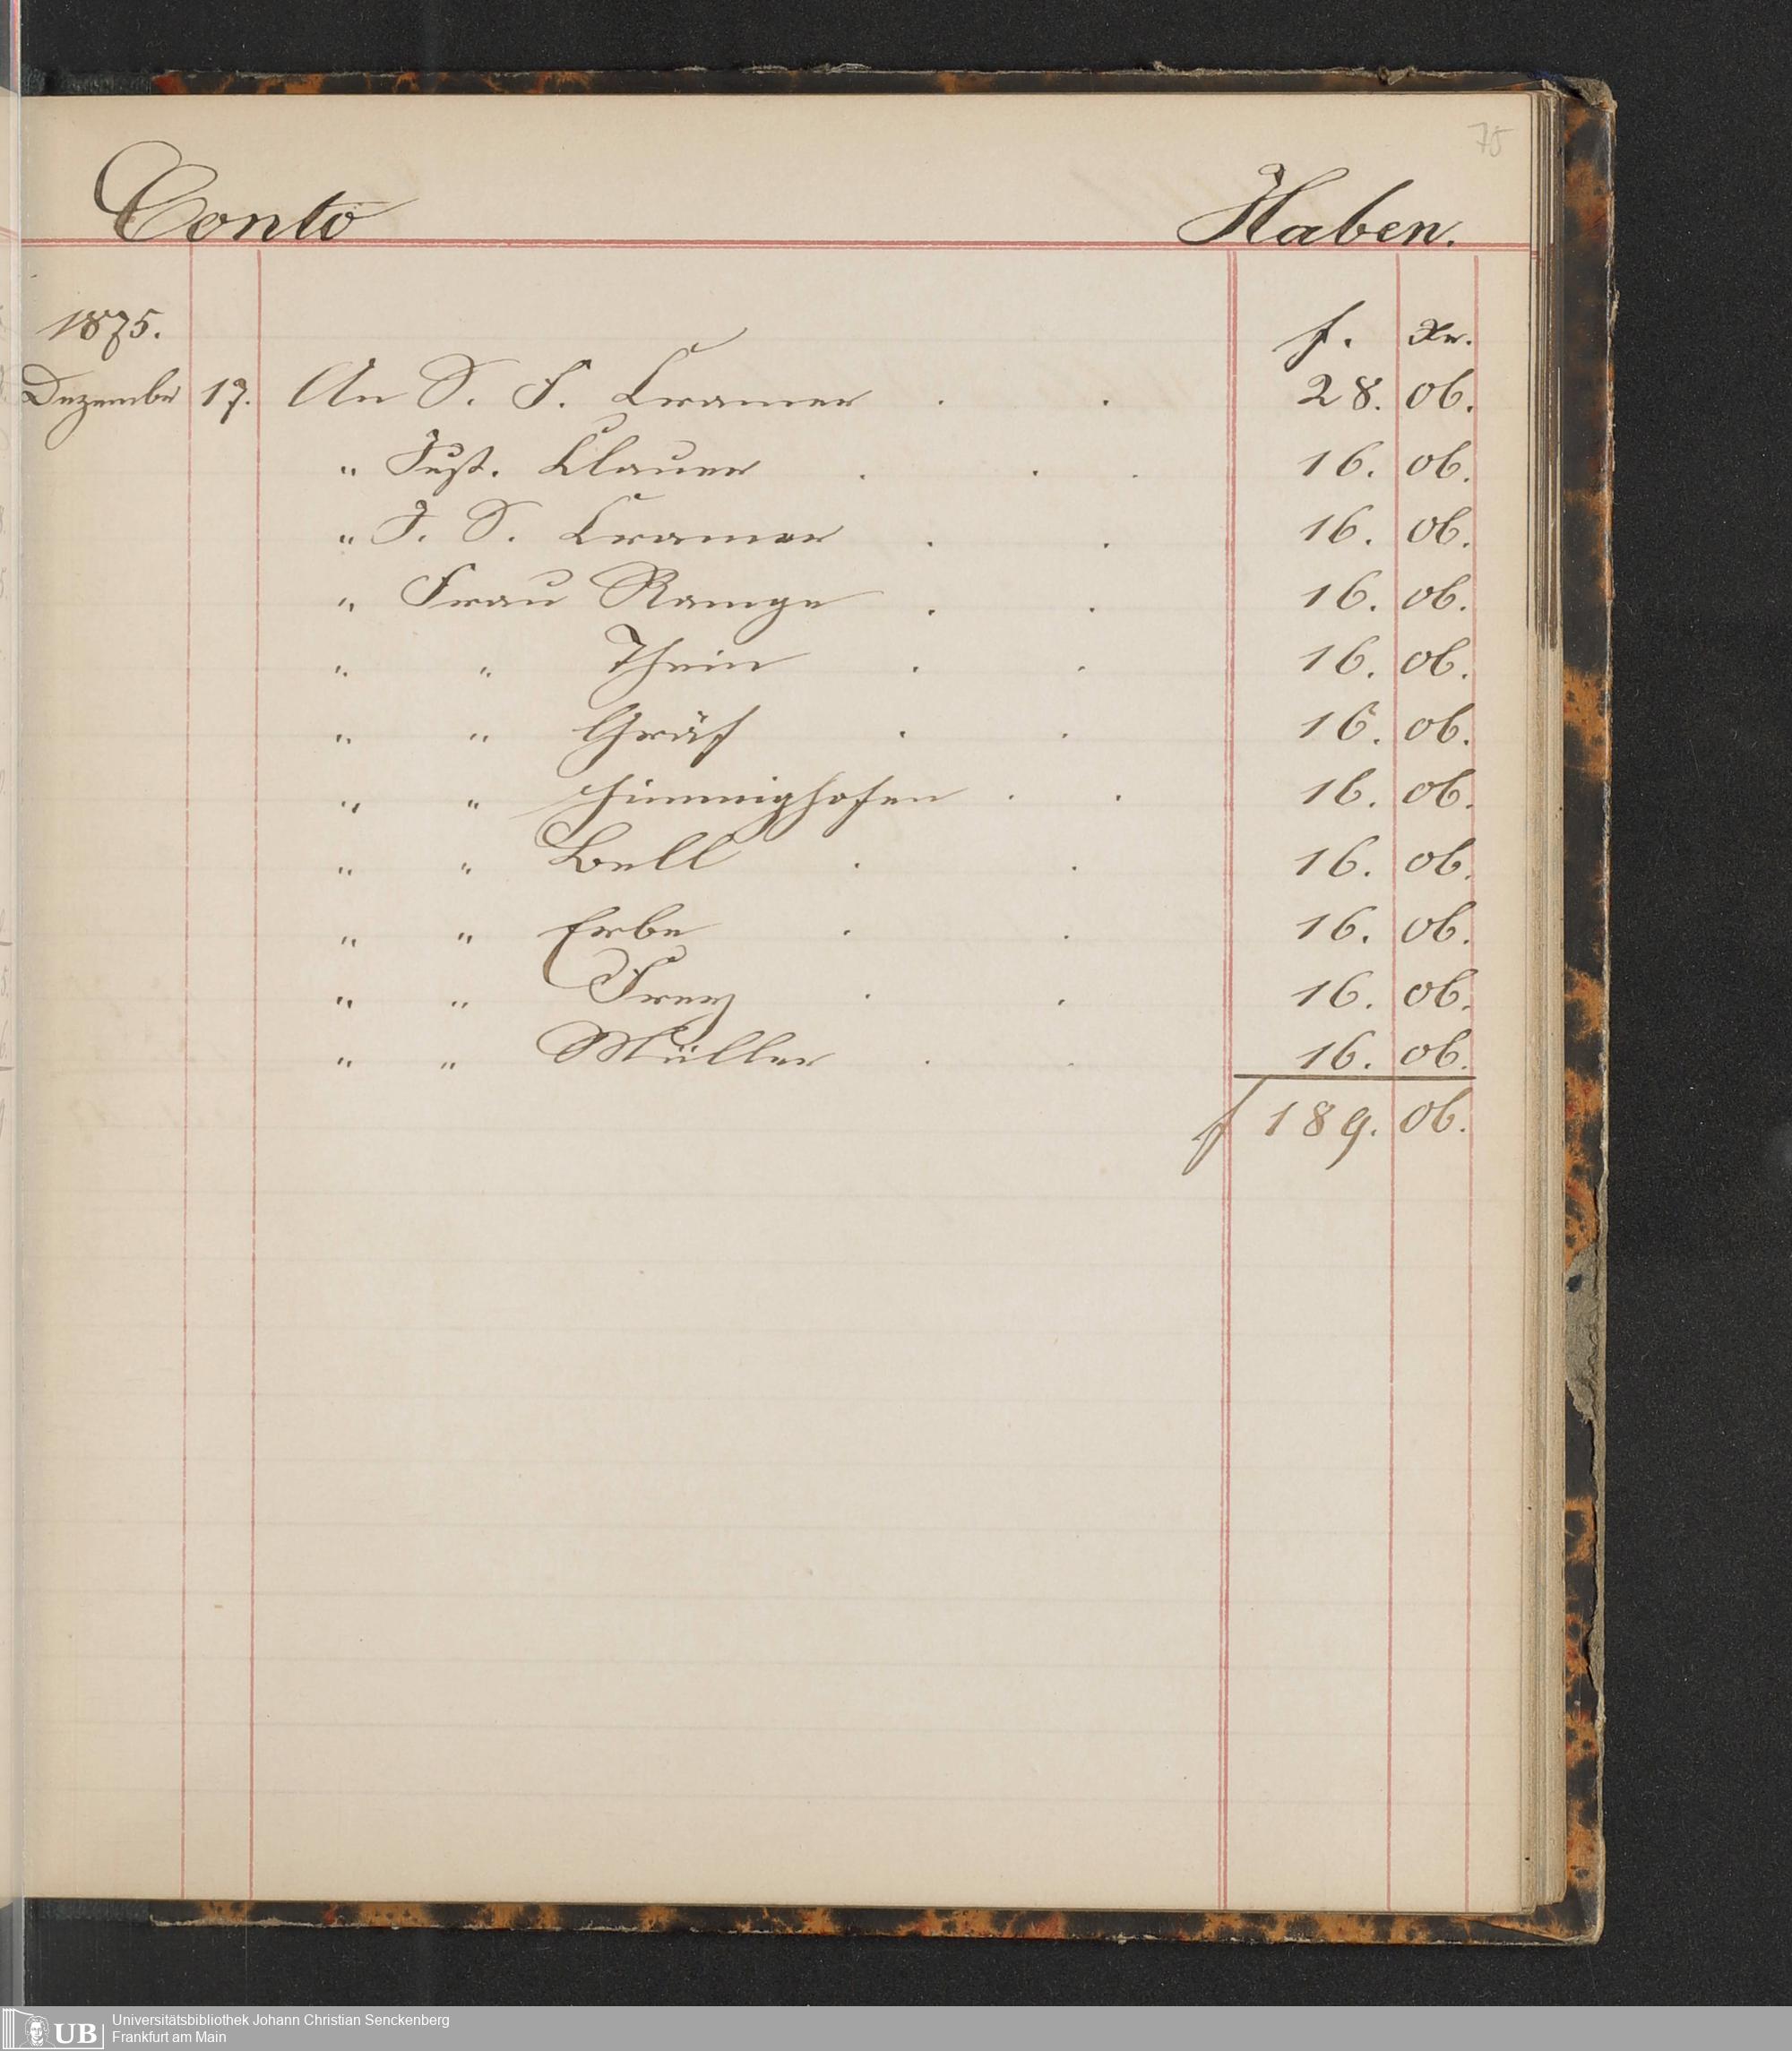 75
Conto Haben.
1875. f. Xr.
Dezember 17. An S. F. Cramer . . 28. 06.
" Just. Clauer . . . 16. 06.
" J. S. Cramer . . 16. 06.
" Frau Ramge . . 16. 06.
" " Thein . . 16. 06.
" " Gräf . . 16. 06.
" " Himmighofen . . 16. 06.
" " Bell . . 16. 06.
" " Erbe . . 16. 06.
" " . . 16. 06.
" " Müller . . 16. 06.
f 189. 06.
UB
Universitätsbibliothek Johann Christian Senckenberg
Frankfurt am Main